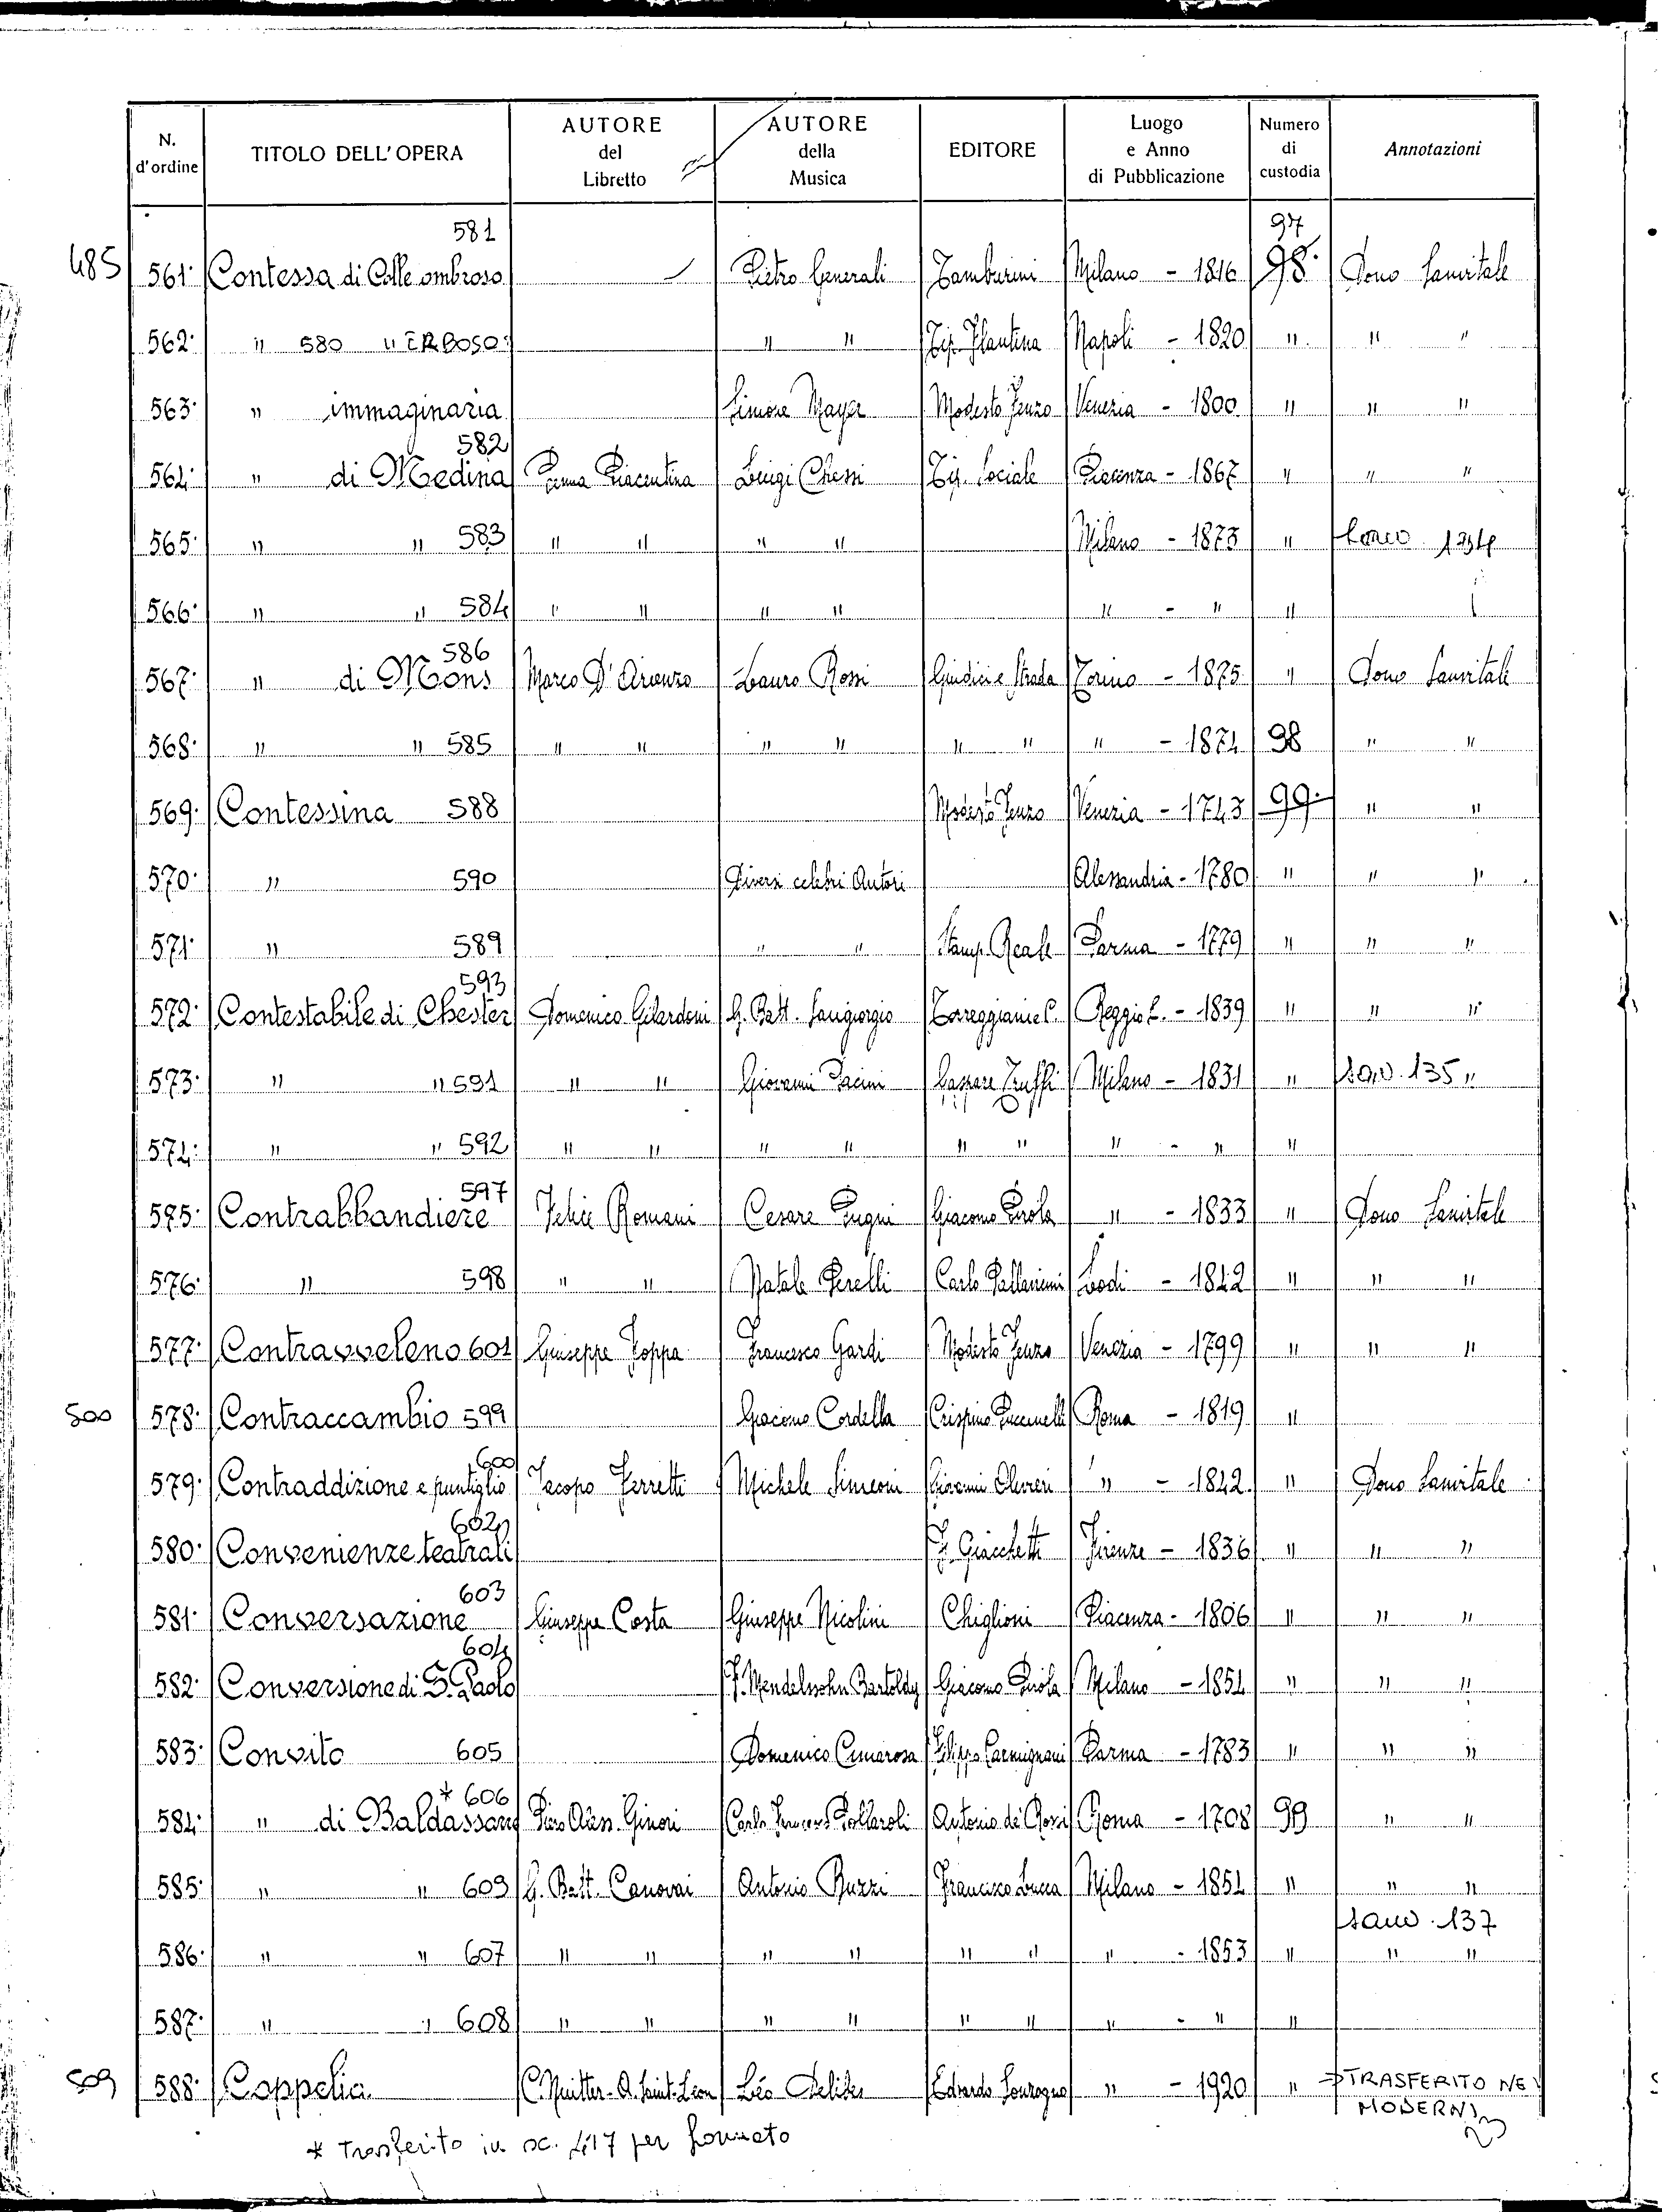 N. d'ordine | TITOLO DELL'OPERA | AUTORE del Libretto | AUTORE della Musica | EDITORE | Luogo e Anno di Pubblicazione | Numero di custodia | Annotazioni
581 97
485 561. Contessa di Colle ombroso Pietro Generali Tamburini Milano - 1816 98. Dono Sanvitale
562. " 580 " ERBOSO. " " Tip. Flautina Napoli - 1820 " " "
563. " immaginaria Simone Mayer Modesto Fenzo Venezia - 1800 " " "
582
564. " di Medina Penna Piacentina Luigi Chessi Tip. Sociale Piacenza - 1867 " " "
565. " " 583 " " " " Milano - 1873 " 134
566. " " 584 " " " " " - " "
586
567. " di Mons Marco D'Arienzo Lauro Rossi Giudici e Strada Torino - 1875 " Dono Sanvitale
568. " " 585 " " " " " " " - 1874 98 " "
569. Contessina 588 Modesto Fenzo Venezia - 1743 99. " "
570. " 590 Diversi celebri Autori Alessandria - 1780 " " "
571. " 589 " " Stamp. Reale Parma - 1779 " " "
593
572. Contestabile di Chester Domenico Gilardoni G. Batt. Sangiorgio Torreggiani e C. Reggio E. - 1839 " " "
573. " " 591 " " Giovanni Pacini Gaspare Truffi Milano - 1831 " 135 "
574. " " 592 " " " " " " " - " "
597
575. Contrabbandiere Felice Romani Cesare Pugni Giacomo Pirola " - 1833 " Dono Sanvitale
576. " 598 " " Natale Perelli Carlo Pallavicini Lodi - 1842 " " "
577. Contravveleno 601 Giuseppe Foppa Francesco Gardi Modesto Fenzo Venezia - 1799 " " "
500 578. Contraccambio 599 Giacomo Cordella Crispino Puccinelli Roma - 1819 "
600
579. Contraddizione e puntiglio Jacopo Ferretti Michele Simeoni Giovanni Olivieri " - 1842 " Dono Sanvitale
602
580. Convenienze teatrali F. Giachetti Firenze - 1836 " " "
603
581. Conversazione Giuseppe Costa Giuseppe Nicolini Ghiglioni Piacenza - 1806 " " "
604
582. Conversione di S. Paolo F. Mendelssohn Bartoldy Giacomo Pirola Milano - 1854 " " "
583. Convito 605 Domenico Cimarosa Filippo Carmignani Parma - 1783 " " "
* 606
584. " di Baldassare Piero Aless. Ginori Carlo Francesco Pollaroli Antonio de Rossi Roma - 1708 99 " "
585. " " 609 G. Batt. Canovai Antonio Buzzi Francesco Lucca Milano - 1854 " " "
137
586. " " 607 " " " " " " " - 1853 " " "
587. " " 608 " " " " " " " - " "
509 588. Coppelia C. Nuitter - A. Saint-Léon Léo Delibes Edoardo Sonzogno " - 1920 " → TRASFERITO NEI
MODERNI
* Trasferito in sc. 417 per formato